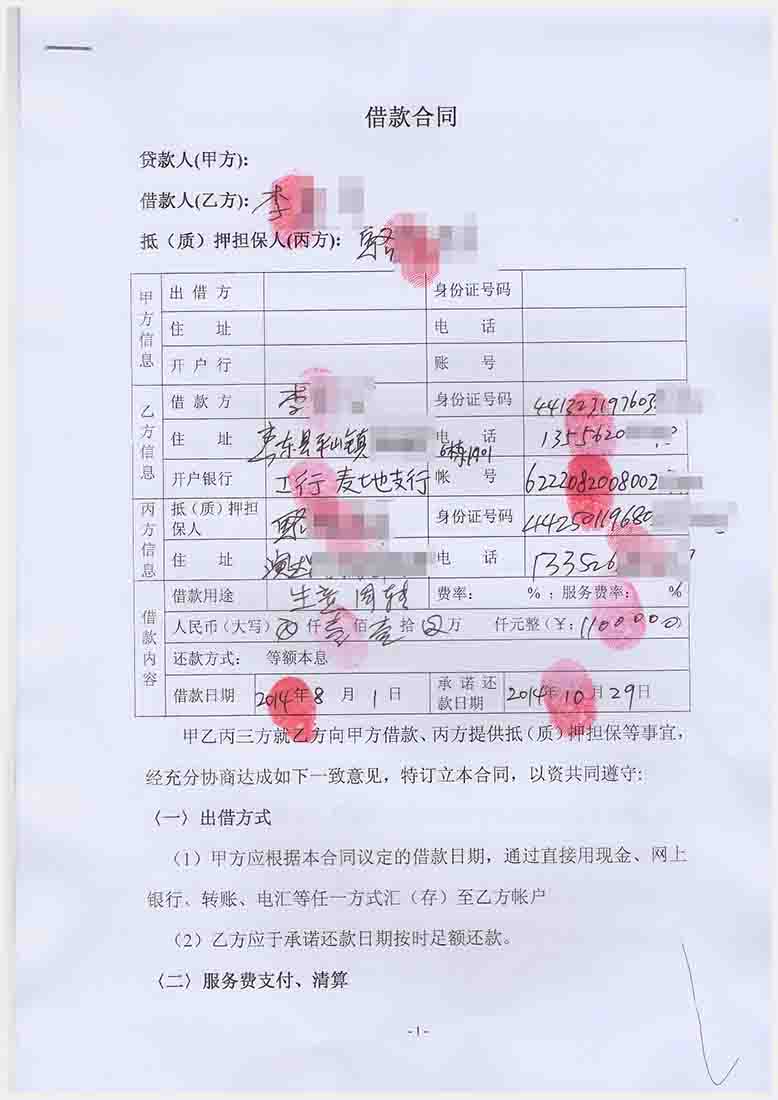 借款合同
贷款人(甲方):
借款人(乙方): 李
抵（质）押担保人(丙方): 骆
甲方信息
出 借 方 身份证号码
住 址 电 话
开 户 行 账 号
乙方信息
借 款 方 李 身份证号码 441323197603
住 址 惠东县平山镇 6栋1901 电 话 1355620
开户银行 工行 麦地支行 帐 号 6222082008002
丙方信息
抵（质）押担保人 骆 身份证号码 44250119680
住 址 电 话 133526
借款内容
借款用途 生意周转 费率: %；服务费率: %
人民币（大写） 仟壹佰壹拾 万 仟元整（¥: 1100000）
还款方式: 等额本息
借款日期 2014年8月1日 承诺还款日期 2014年10月29日
甲乙丙三方就乙方向甲方借款、丙方提供抵（质）押担保等事宜，
经充分协商达成如下一致意见，特订立本合同，以资共同遵守:
〈一〉出借方式
（1）甲方应根据本合同议定的借款日期，通过直接用现金、网上
银行、转账、电汇等任一方式汇（存）至乙方帐户
（2）乙方应于承诺还款日期按时足额还款。
〈二〉服务费支付、清算
- 1 -